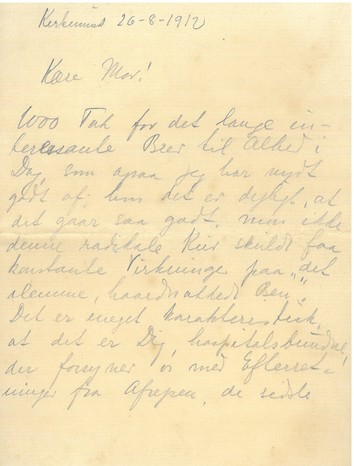 Kerteminde 26-8-1912
Kære Mor!
1000 Tak for det lange in-
teressante Brev til Alhed i
Dag, som ogsaa jeg har nydt
godt af; hvor det er dejligt, at
det gaar saa godt, mon ikke
denne radikale Kur skulde faa
konstante Virkninger paa "det
slemme, haardnakkede Ben".
Det er meget karakteristisk,
at det er Dig, hospitalsbundne,
der forsyner os med Efterret-
ninger fra , de sidste